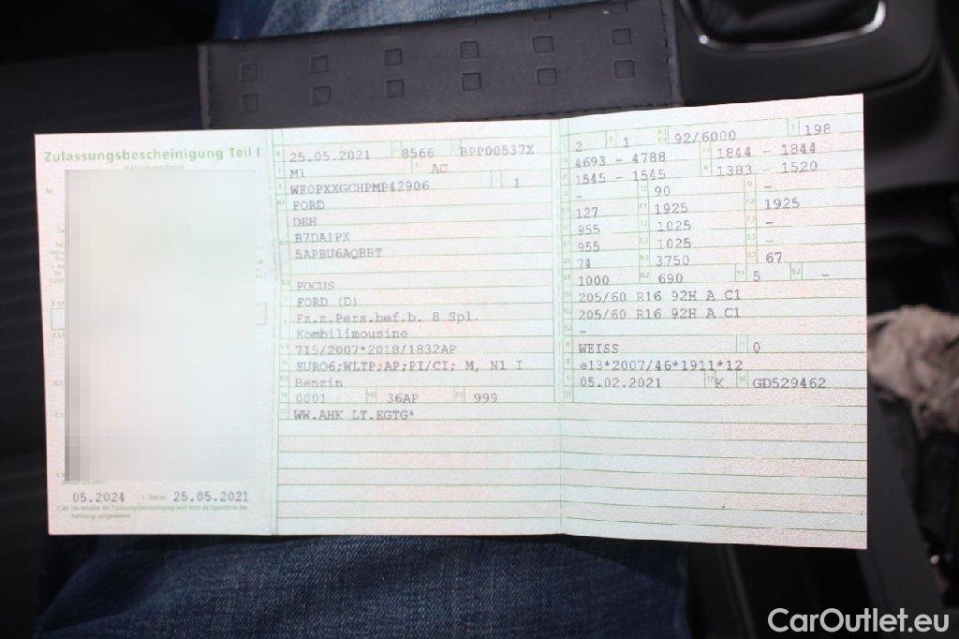 Zulassungsbescheinigung Teil I
05.2024 25.05.2021
25.05.2021 8566 BPP00537X
M1 AC
WF0PXXGCHPMP42906 1
FORD
DEH
B7DA1PX
5APBU6AQBBT
FOCUS
FORD (D)
Fz.z.Pers.bef.b. 8 Spl.
Kombilimousine
715/2007*2018/1832AP
EURO6;WLTP;AP;PI/CI; M, N1 I
Benzin
0001 36AP 999
WW.AHK LT.EGTG*
2 1 92/6000 198
4693 - 4788 1844 - 1844
1545 - 1545 1383 - 1520
- 90 -
127 1925 1925
955 1025 -
955 1025 -
74 3750 67
1000 690 5 -
205/60 R16 92H A C1
205/60 R16 92H A C1
-
WEISS 0
e13*2007/46*1911*12
05.02.2021 K GD529462
CarOutlet.eu